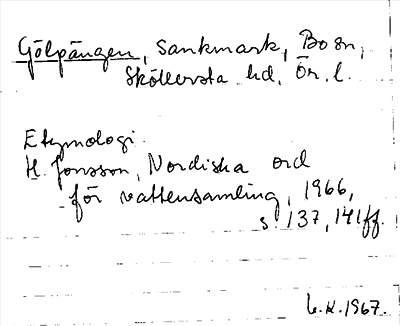 Gölpängen, sankmark, Bo sn,
Sköllersta hd, Ör. l.
Etymologi.
H. Jonsson, Nordiska ord
för vattensamling, 1966,
s. 137, 141ff.
L.H. 1967.